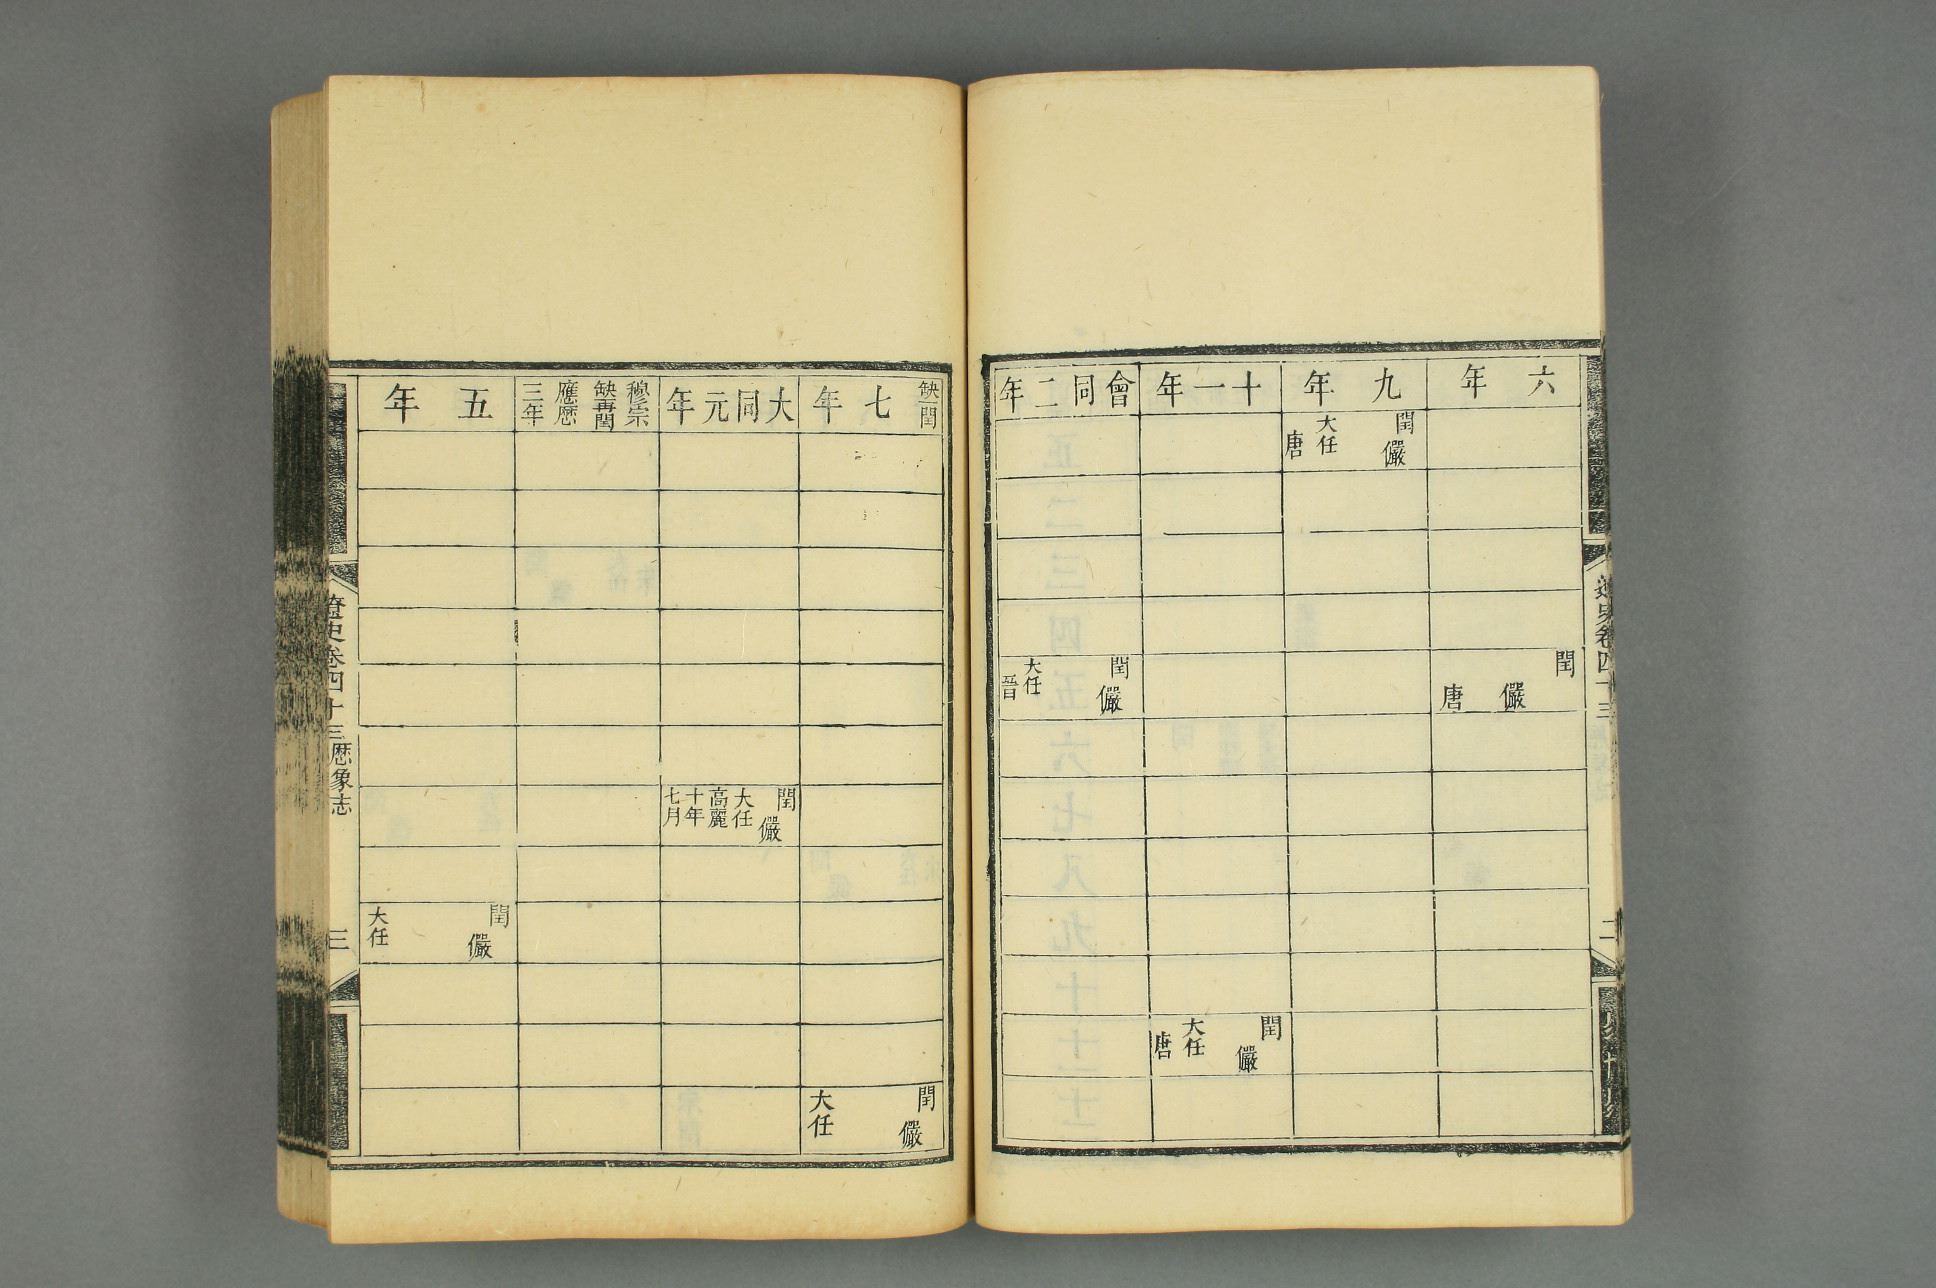 六年
閏
儼
唐
九年
閏
儼
大任
唐
十一年
閏
儼
大任
唐
會同二年
閏
儼
大任
晉
缺一閏
七年
閏
儼
大任
大同元年
閏
儼
大任
高麗
十年
七月
穆宗
缺再閏
應歷
三年
五年
閏
儼
大任
遼史卷四十三
二
遼史卷四十三 歷象志
三